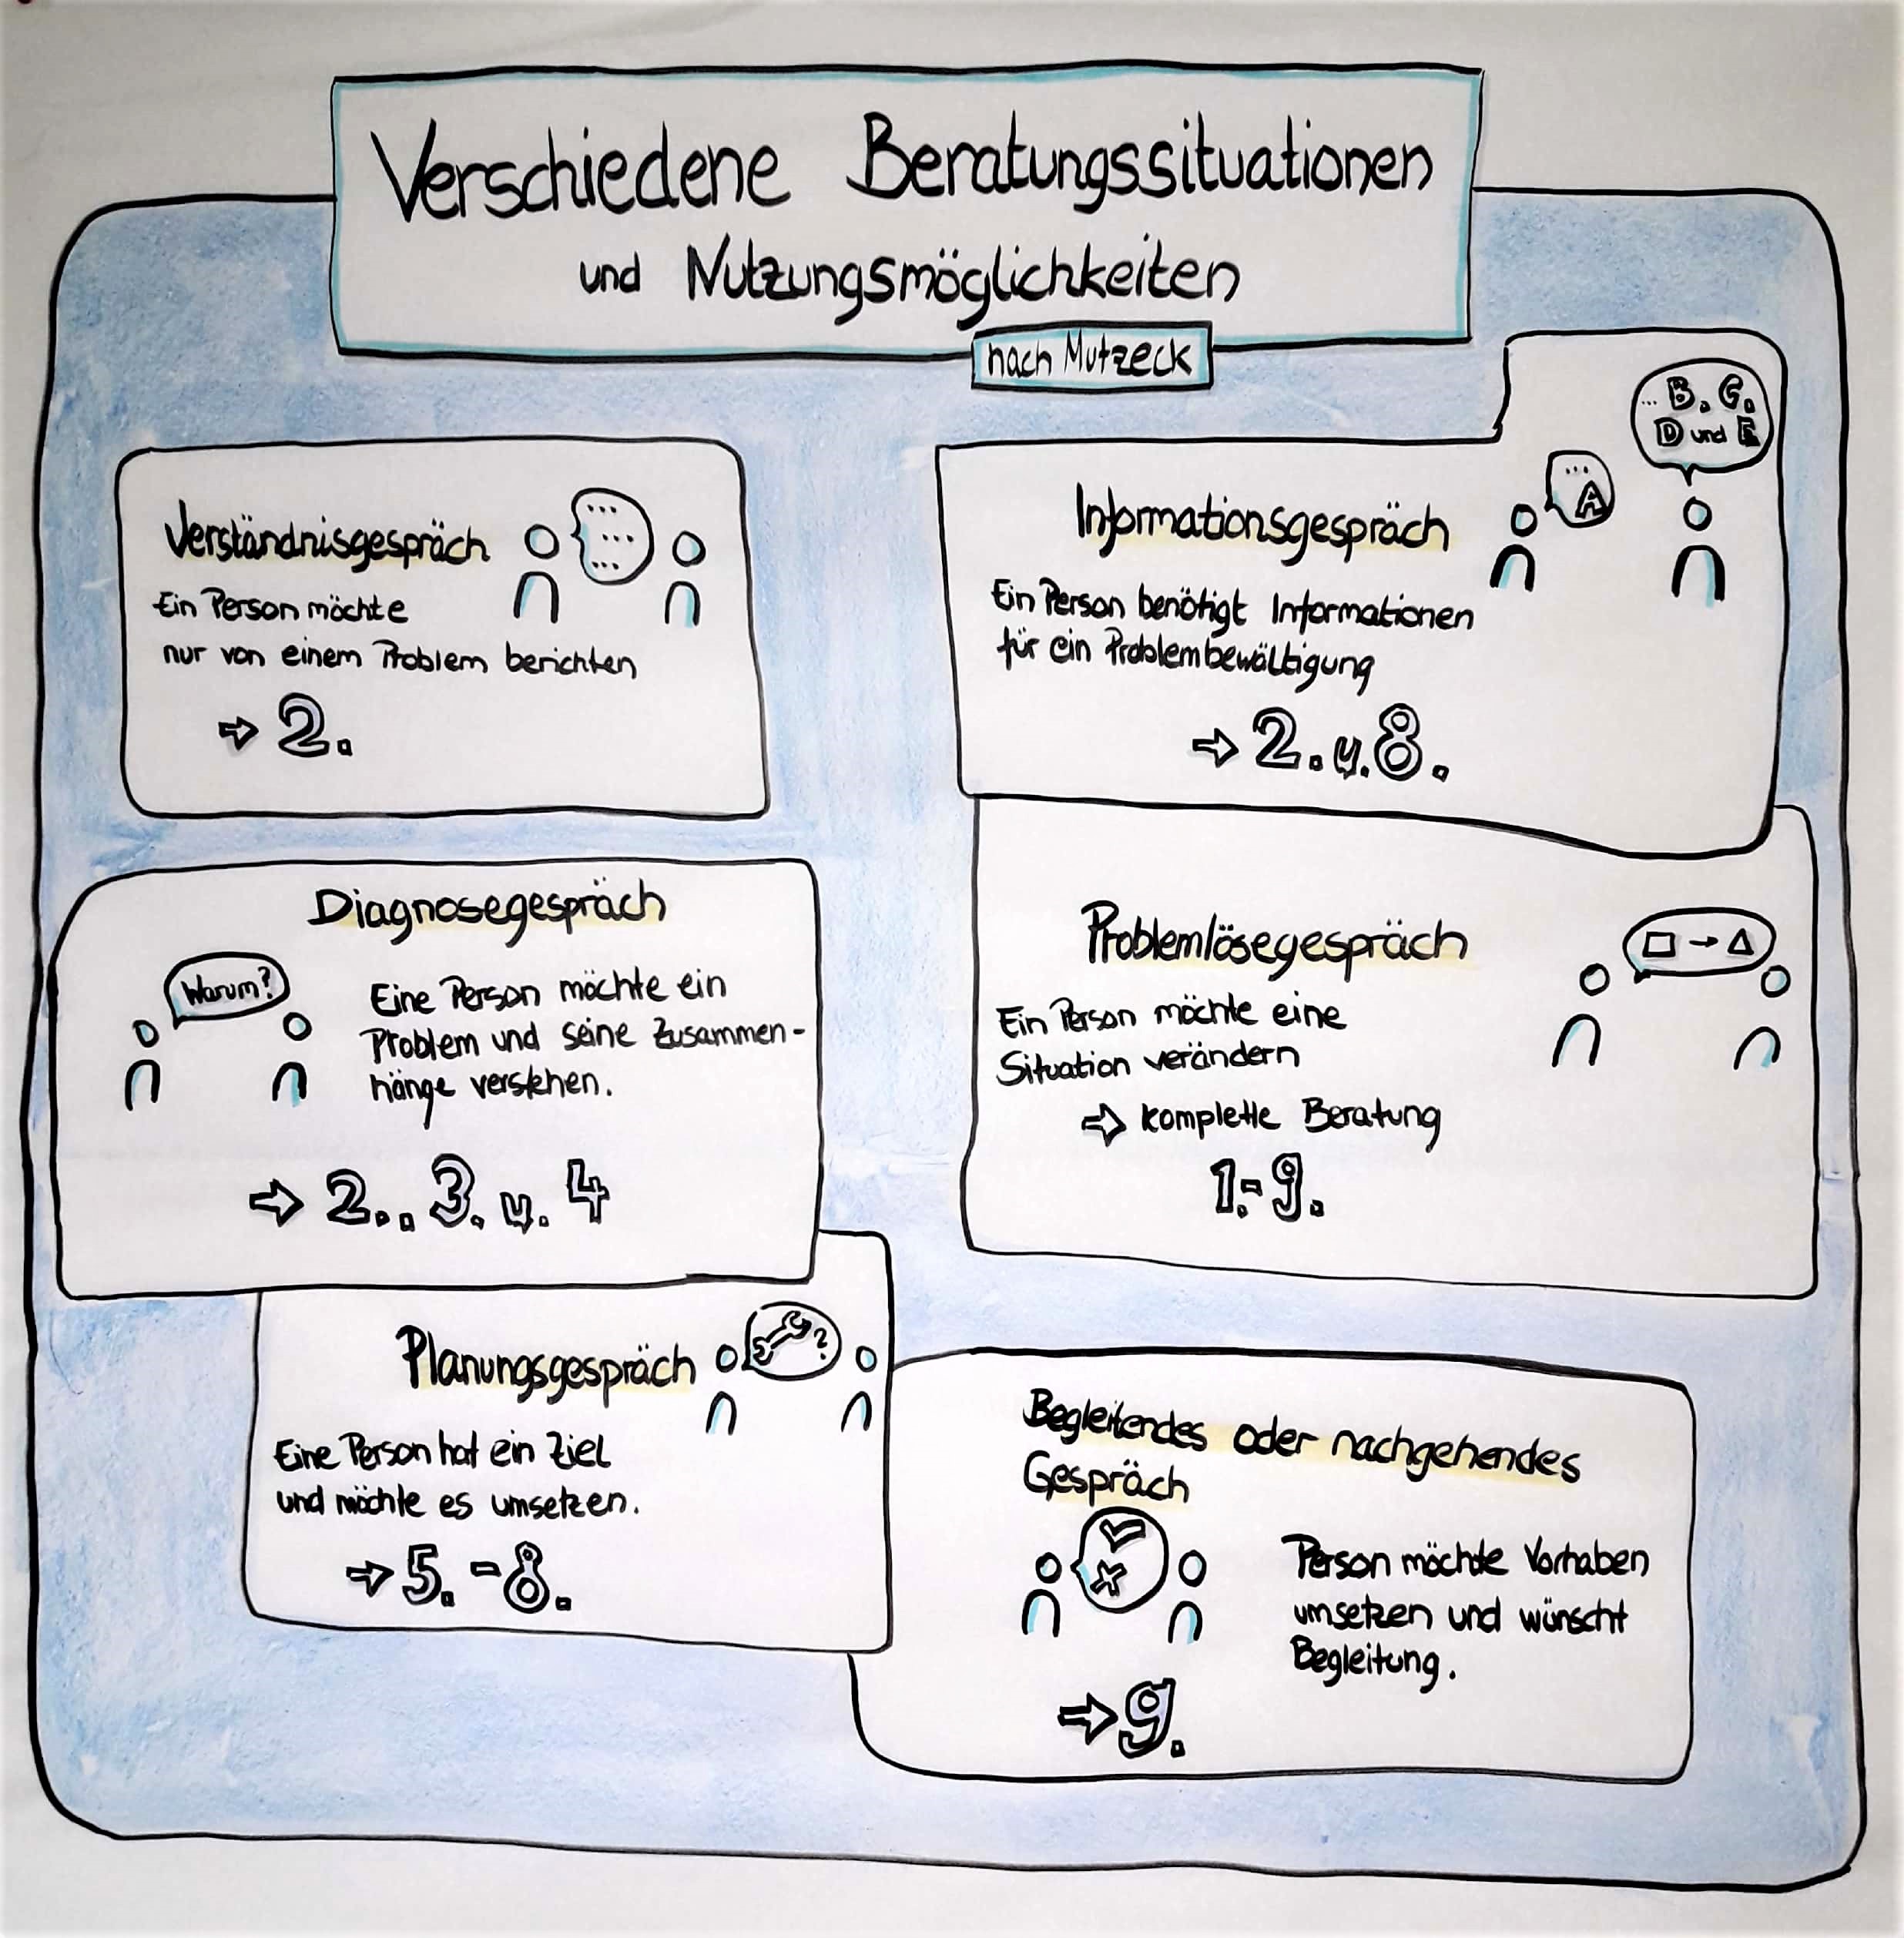 Verschiedene Beratungssituationen
und Nutzungsmöglichkeiten
nach Mutzeck
Verständnisgespräch
...
...
...
Ein Person möchte
nur von einem Problem berichten
⇨ 2.
Informationsgespräch
... A
... B, C,
D und E
Ein Person benötigt Informationen
für ein Problembewältigung
⇨ 2. u. 8.
Diagnosegespräch
Warum?
Eine Person möchte ein
Problem und seine Zusammen-
hänge verstehen.
⇨ 2.. 3. u. 4
Problemlösegespräch
□ → △
Ein Person möchte eine
Situation verändern
⇨ komplette Beratung
1.-9.
Planungsgespräch
?
Eine Person hat ein Ziel
und möchte es umsetzen.
⇨ 5. - 8.
Begleitendes oder nachgehendes
Gespräch
Person möchte Vorhaben
umsetzen und wünscht
Begleitung.
⇨ 9.